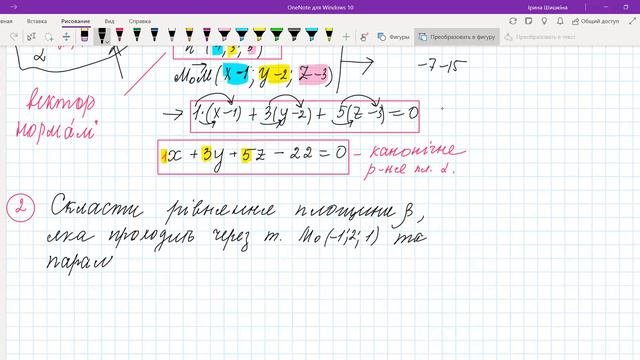 OneNote для Windows 10
Ірина Шишкіна
Рисование
Общий доступ
Фигуры
Преобразовать в фигуру
Преобразовать в текст
2
n (1; 3; 5)
M₀M (x-1; y-2; z-3)
-7-15
вектор
нормалі
→ 1·(x-1) + 3(y-2) + 5(z-3) = 0
1x + 3y + 5z - 22 = 0 - канонічне
р-ння пл. α.
2 Скласти рівняння площини β,
яка проходить через т. M₀(-1; 2; 1) та
парал